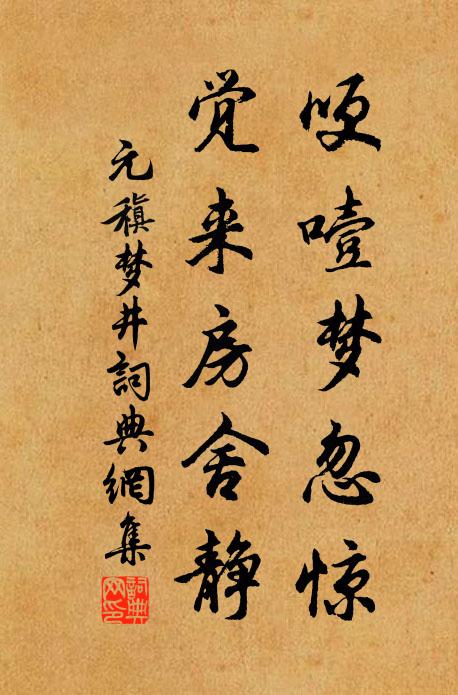 哽噎梦忽惊
觉来房舍静
元稹梦井詞典網集
詞典网印